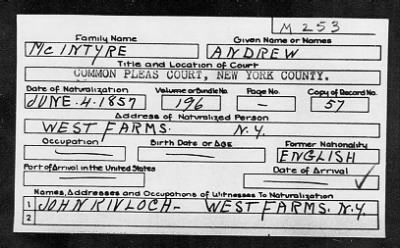 M 253
Family Name Given Name or Names
McINTYRE ANDREW
Title and Location of Court
COMMON PLEAS COURT, NEW YORK COUNTY.
Date of Naturalization Volume or Bundle No. Page No. Copy of Record No.
JUNE.4.1857 196 — 57
Address of Naturalized Person
WEST FARMS. N.Y.
Occupation Birth Date or Age Former Nationality
— — ENGLISH
Port of Arrival in the United States Date of Arrival
— — ✓
Names, Addresses and Occupations of Witnesses To Naturalization
1 JOHN KINLOCH— WEST FARMS. N.Y.
2